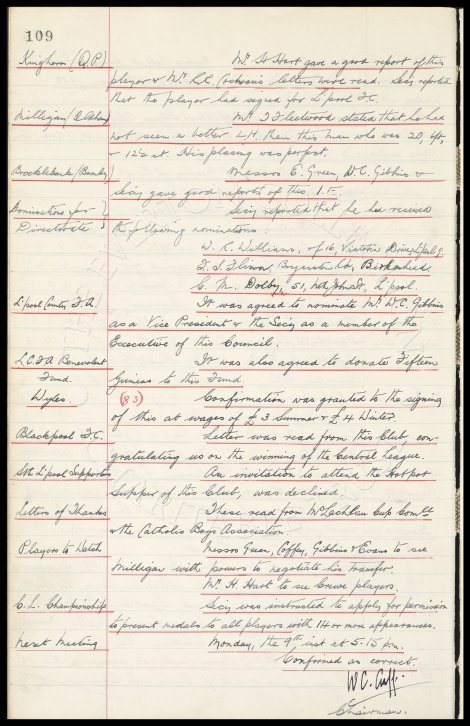 109
Kinghorn (Q.P.) Mr. H. Hart gave a good report of this
player & Mr. R.C. Cochran's letters were read. Secy reported
that the player had signed for L'pool F.C.
Milligan (Oldham) Mr. J. Fleetwood stated that he had
not seen a better L.H. than this man who was 20, 6ft,
& 12½ st. His placing was perfect.
Brocklebank (Burnley) Messrs E. Green, W.C. Gibbins &
Secy gave good reports of this I.F.
Nominations for Secy reported that he had received
Directorate the following nominations:
W. R. Williams, of 16, Victoria Drive, L'pool 9.
T. J. Flinn, Rd, Birkenhead.
C. M. Dolby, 51, Nth John St, L'pool.
L'pool County F.A. It was agreed to nominate Mr. W.C. Gibbins
as a Vice President & the Secy as a member of the
Executive of this Council.
L.C.F.A Benevolent It was also agreed to donate Fifteen
Fund. Guineas to this Fund.
Wyles. (83) Confirmation was granted to the signing
of this at wages of £3 Summer & £4 Winter.
Blackpool F.C. Letter was read from this Club, con-
gratulating us on the winning of the Central League.
Sth L'pool Supporters An invitation to attend the Hotpot
Supper of this Club, was declined.
Letters of Thanks These read from McLachlan Cup Comtt
& the Catholic Boys Association.
Players to Watch Messrs Green, Coffey, Gibbins & Evans to see
Milligan with powers to negotiate his transfer.
Mr. H. Hart to see Crewe players.
C.L. Championship Secy was instructed to apply for permission
to present medals to all players with 14 or more appearances.
Next Meeting Monday, the 9th inst at 5-15 pm.
Confirmed as correct.
W.C. Cuff.
Chairman.